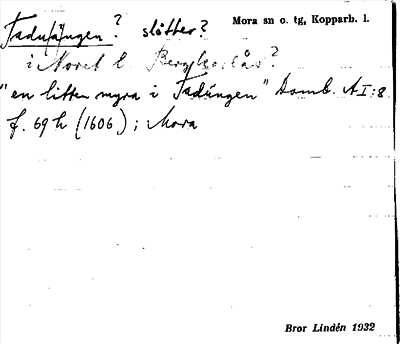 Tadusängen? slåtter? Mora sn o. tg, Kopparb. l.
i Noret l.
"en litten myra i Tadüngen" Domb. A I:8
f. 69 h (1606); Mora
Bror Lindén 1932